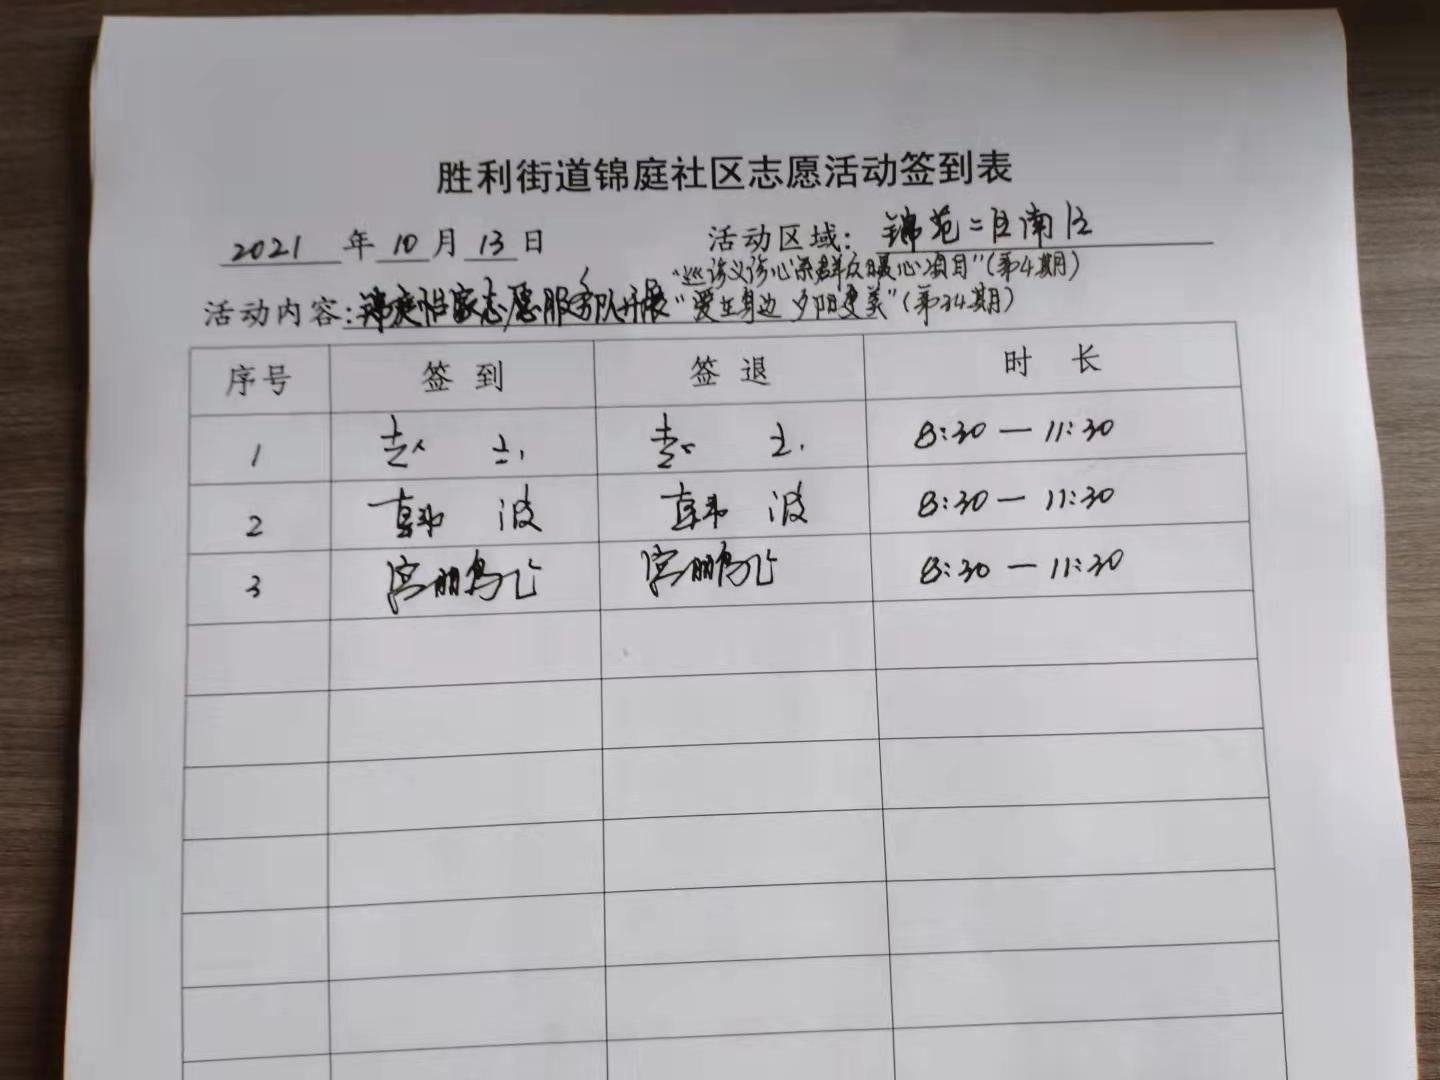 胜利街道锦庭社区志愿活动签到表
2021 年 10 月 13 日 活动区域: 锦苑二区南区
"巡诊义诊心系群众暖心项目"(第4期)
活动内容: 锦庭怡家志愿服务队开展"爱在身边 夕阳更美"(第34期)
序号 签到 签退 时长
1 赵 赵 8:30—11:30
2 韩波 韩波 8:30—11:30
3 宫鹏飞 宫鹏飞 8:30—11:30